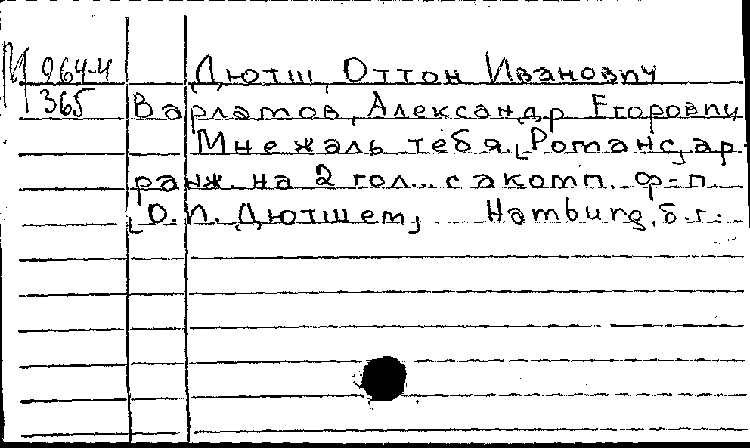 М 964-4 Дютш, Оттон Иванович
365 Варламов, Александр Егорович
Мне жаль тебя. [Романс, ар-
ранж. на 2 гол. с акомп. ф-п.
[О. И. Дютшем], Hamburg, б. г.